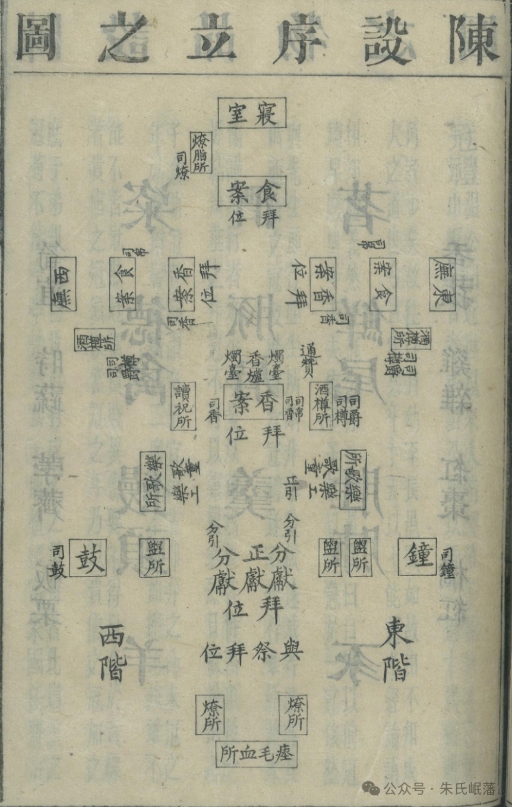 陳設序立之圖
寢室
燎脂所
司燎
食案
拜位
東廡
食案
司帛
香案
司香
拜位
西廡
食案
司帛
香案
司香
拜位
酒樽所
司爵
司樽
酒樽所
司爵
司樽
通贊
燭臺
香爐
燭臺
香案
拜位
司帛
司香
司香
酒樽所
司爵
司樽
讀祝所
樂歌所
樂工
歌童
樂歌所
歌童
樂工
正引
分引
分引
分獻
正獻
分獻
拜位
鐘
司鐘
盥所
盥所
盥所
鼓
司鼓
東階
西階
與祭拜位
燎所
燎所
瘞毛血所
公众号·朱氏岷藩